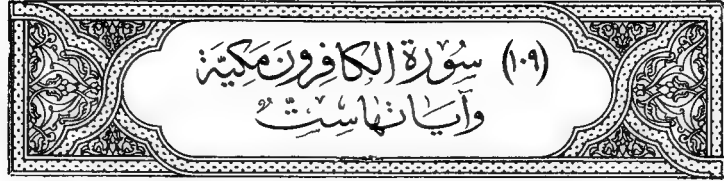 (١٠٩) سُوْرَةُ الكَافِرُونَ مَكِيَّة
وَآيَاتُهَا سِتٌّ